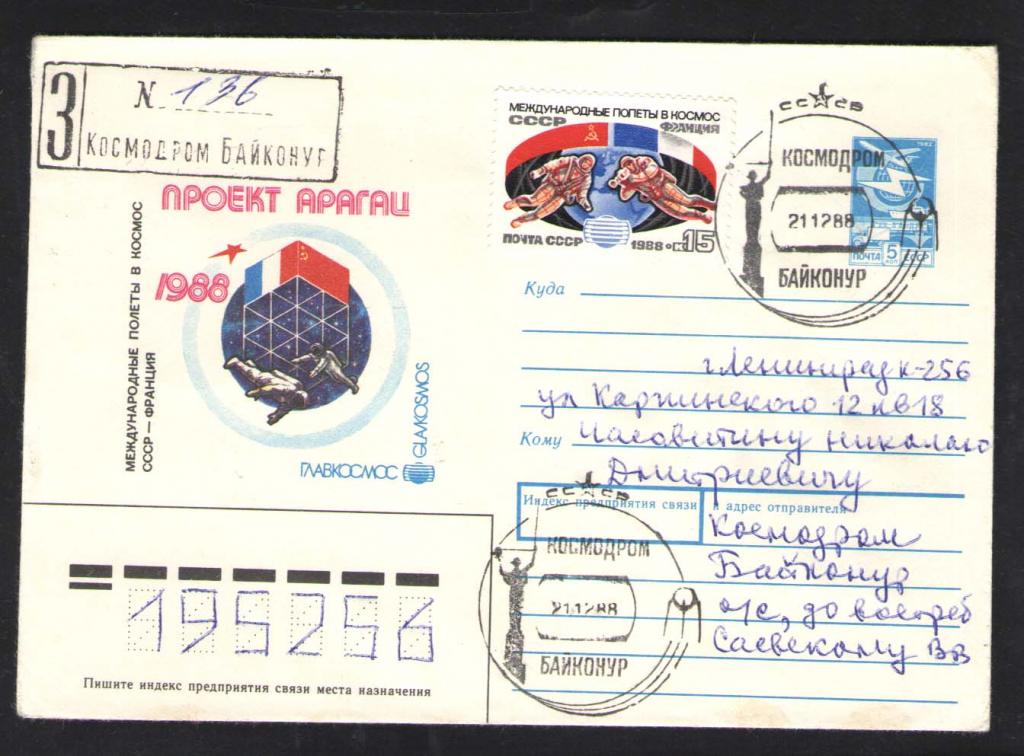 З
N 136
Космодром Байконур
ПРОЕКТ АРАГАЦ
1988
МЕЖДУНАРОДНЫЕ ПОЛЕТЫ В КОСМОС
СССР — ФРАНЦИЯ
ГЛАВКОСМОС
GLAVKOSMOS
МЕЖДУНАРОДНЫЕ ПОЛЕТЫ В КОСМОС
СССР
ФРАНЦИЯ
ПОЧТА СССР
1988
15
СССР
КОСМОДРОМ
211288
БАЙКОНУР
1982
ПОЧТА 5 КОП СССР
Куда
г Ленинград к-256
ул Карпинского 12 кв 18
Кому Часовитину Николаю
Дмитриевичу
Индекс предприятия связи и адрес отправителя
Космодром
Байконур
п/с, до востреб
Саевскому ВВ
СССР
КОСМОДРОМ
211288
БАЙКОНУР
195256
Пишите индекс предприятия связи места назначения